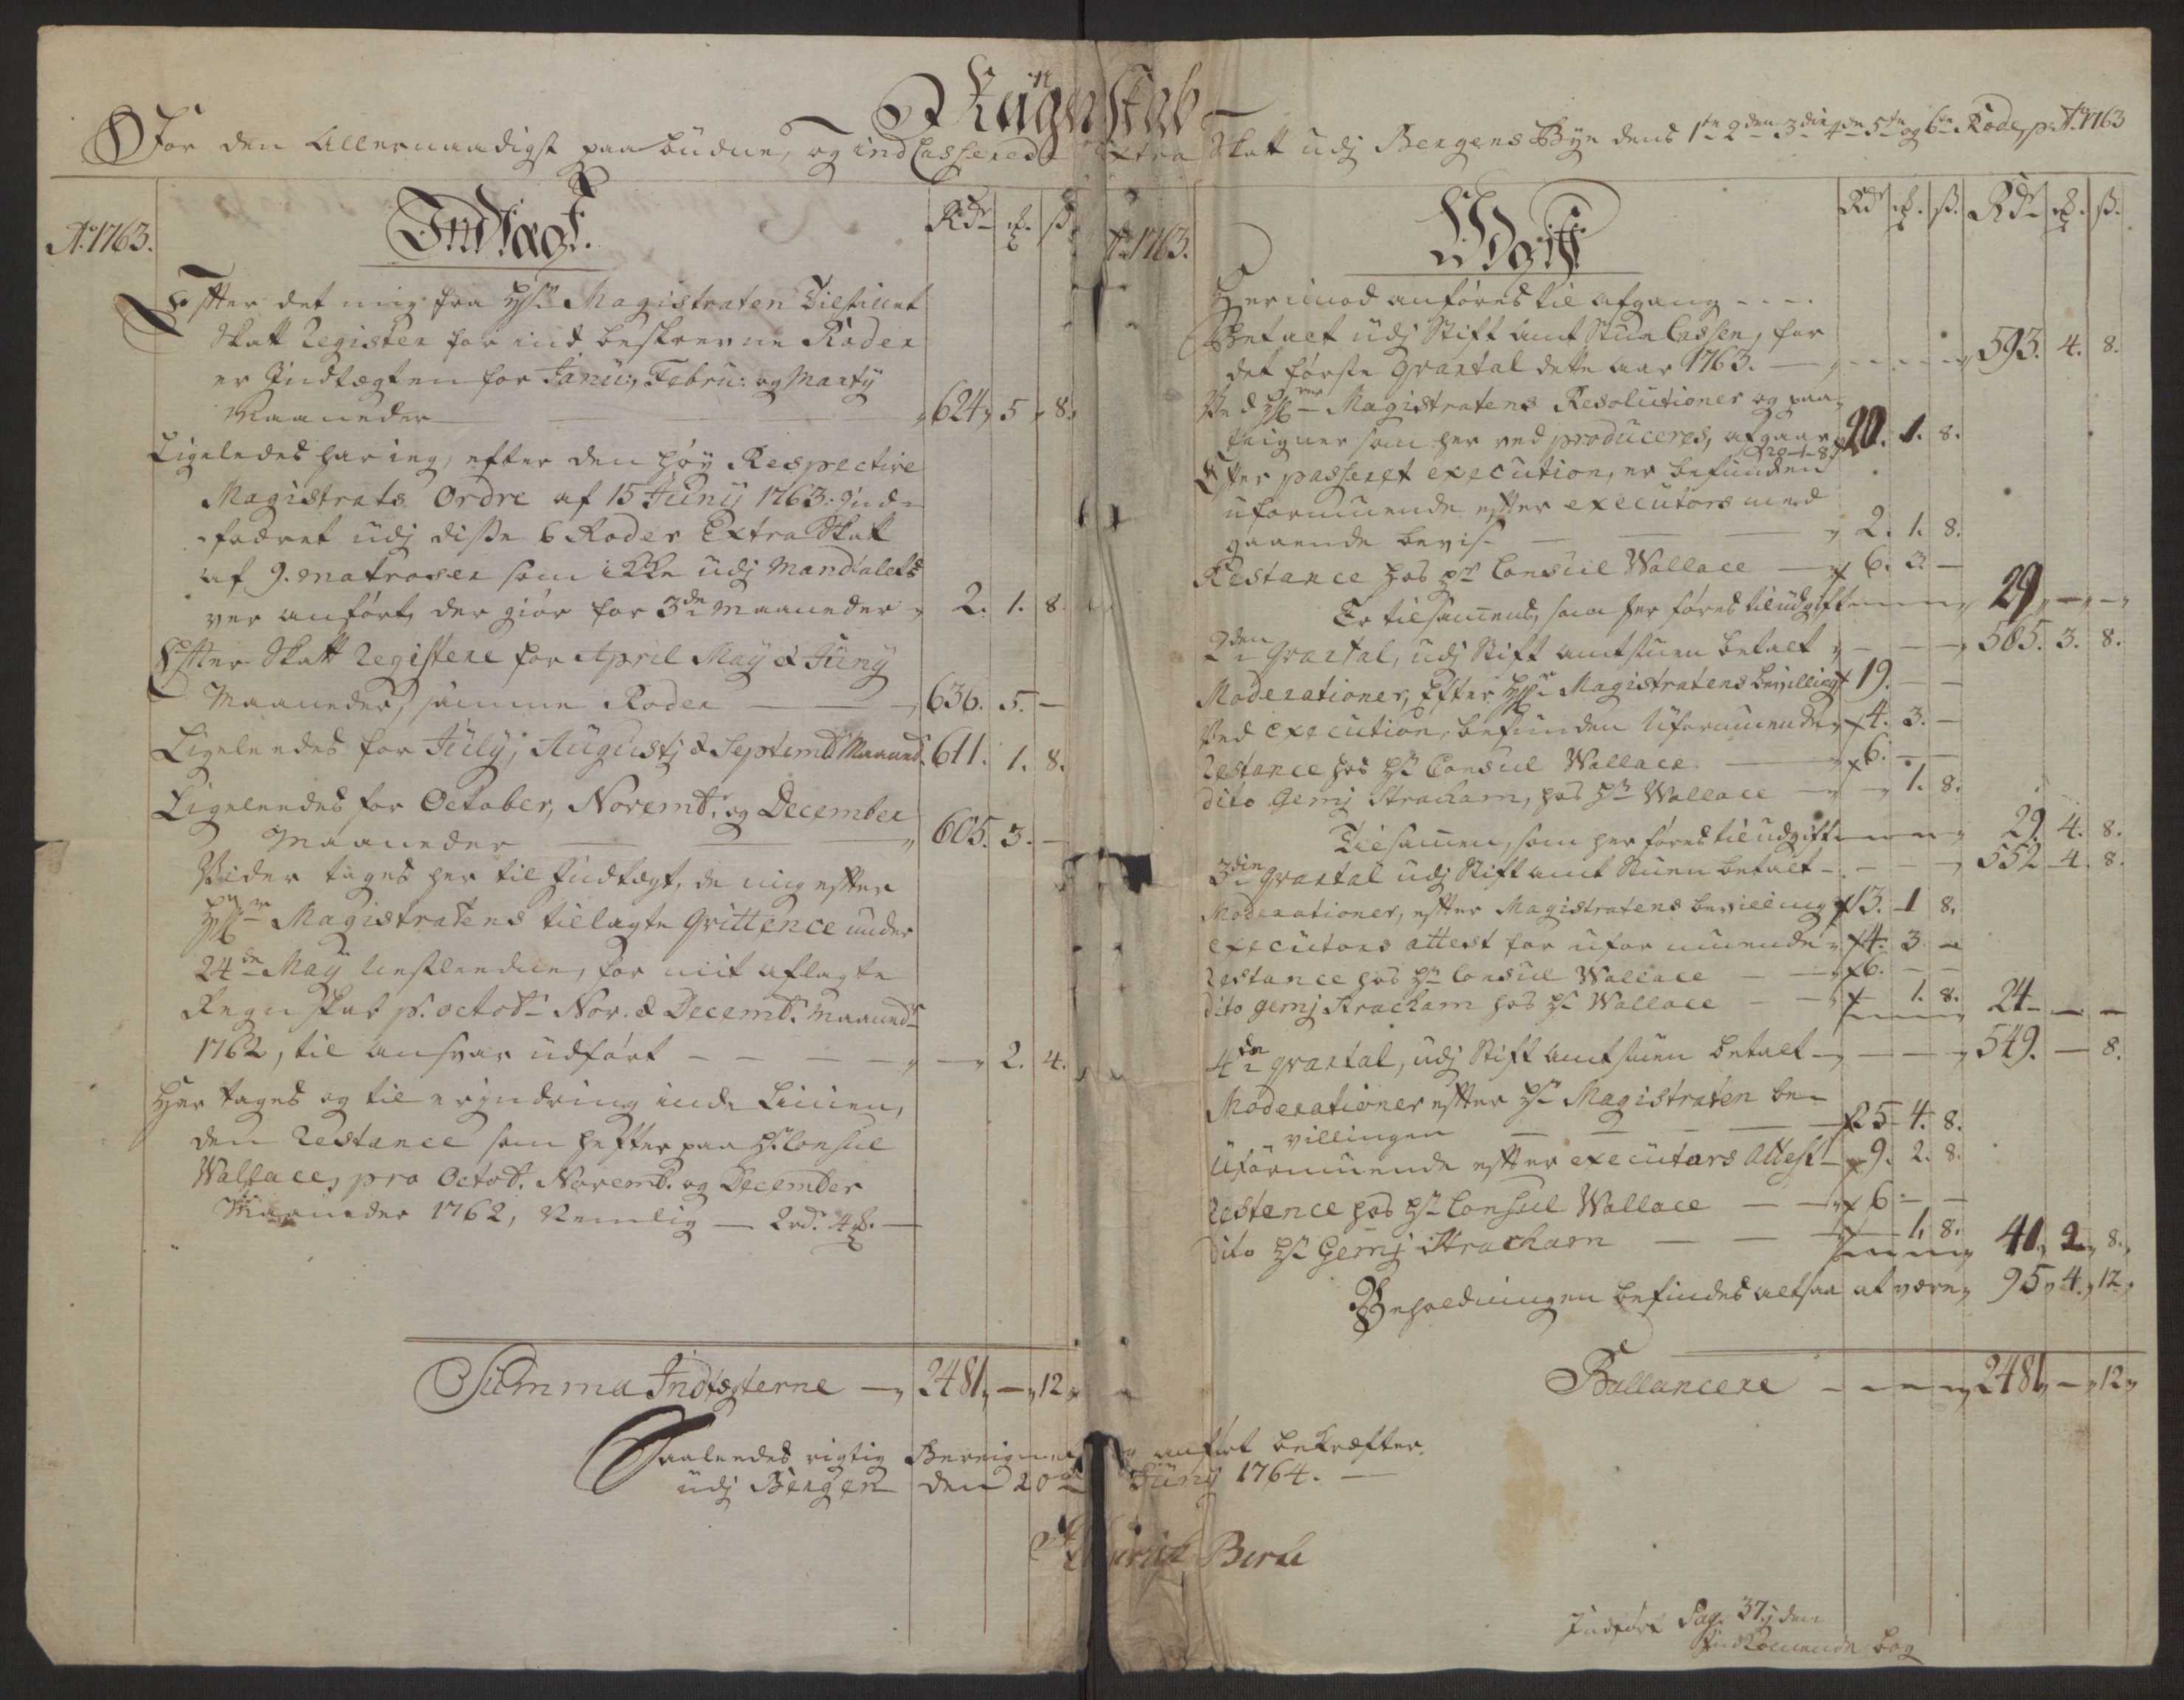 Regnskab
For den Allernaadigst paabudne, og indCasserede Extra Skatt udj Bergens Bye dens 1te 2den 3die 4de 5te og 6te Rode, pr. Ao. 1763
Ao. 1763.
Indtægt.
Rdr. ß.
Efter det mig fra Hr. Magistraten Tilstillet
Skatt Register for ind beskrevne Roder
er Indtægten for Janu:, Febru: og Marty
Maaneder 624. 5. 8.
Ligeledes har ieg, efter den høy Respective
Magistrats Ordre af 15 Juny 1763. Ind-
fodret udj disse 6 Roder Extra Skatt
af 9. matroser som ikke udj Mandtalet
var anført, der giør for 3de Maaneder 2. 1. 8.
Efter Skatt Registere for April May & Juny
Maaneder, samme Roder 636. 5. —
Ligeleedes for July, Augustj & Septembr. Maaned. 611. 1. 8.
Ligeleedes for October, Novembr. og December
Maaneder 605. 3. —
Vider tages her til Indtægt, de mig efter
Magistratens tillagte Qvittence under
24de May for mit aflagte
Regnskab pr. octobr. Nov. & Decembr. Maaneder
1762, til ansvar udført — 2. 4.
Her tages og til erindring inden Linien,
den Restance som hefter paa Hr. Consul
Wallace, pro Octobr. Novembr. og December
Maaneder 1762, Nemlig — 2 rd. 4 —
Summa Indtægterne 2481. — 12
Ao. 1763.
Udgift
Rdr. ß. Rdr. ß.
Herimod anføres til afgang
Betalt udj Stift Amt Stue Cassen, for
det første Qvartal dette aar 1763. 593. 4. 8.
Ved Magistratens Resolutioner og paa-
teigner som her ved produceres, afgaar 20. 1. 8.
20-1-8
Efter passeret execution, er befunden
uformuende efter executors med
gaaende bevis 2. 1. 8.
Restance hos Hr. Consul Wallace 6. 3. —
Er tilsamens, som her føres til udgift 29. — —
2den Qvartal, udj Stift amtstuen betalt 585. 3. 8.
Moderationer, Efter Magistratens bevilling 19. — —
Ved execution, befunden Uformuende 4. 3. —
Restance hos Hr. Consul Wallace 6. — —
dito Gemj Stracham, hos Hr. Wallace — 1. 8.
Tilsamen, som her føres til udgift 29. 4. 8.
3die Qvartal udj Stift amt Stuen betalt 552 4. 8.
Moderationer, efter Magistratens bevilling 13. 1 8.
executors attest for uformuende 4. 3 —
Restance hos Hr. Consul Wallace 6. — —
dito gemj Stracham hos Hr. Wallace — 1. 8. 24 — —
4de qvartal, udj Stift Amtstuen betalt 549. — 8.
Moderationer efter Hr. Magistraten be-
villingen 25. 4. 8.
Uformuende efter executors Attest 9. 2. 8.
Restence hos Hr. Consul Wallace 6 — —
dito Hr. Gemj Stracham — 1. 8. 41. 2. 8.
Beholdningen befindes altsaa at være 95. 4. 12.
Ballancere 2481. — 12
Saaleedes rigtig Beregnet og anført bekræfter.
udj Bergen den 20de Juny 1764.
Birk
Indført Pag. 37 j den
Indkomende bog